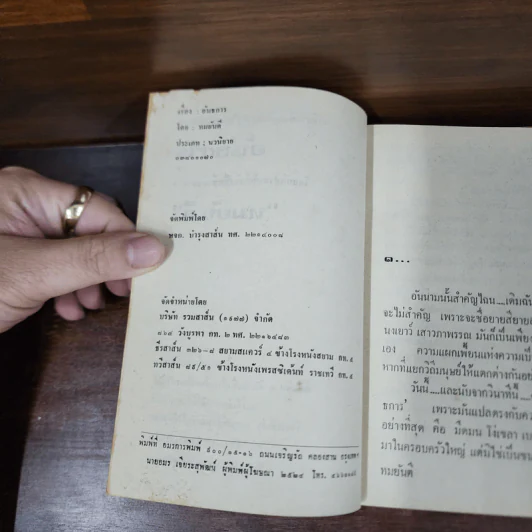 เรื่อง : อันธการ
โดย : ทมยันตี
ประเภท ; นวนิยาย
จัดพิมพ์โดย
หจก. บำรุงสาส์น ทศ. ๒๒๑๔๐๐๘
จัดจำหน่ายโดย
บริษัท รวมสาส์น (๑๙๗๗) จำกัด
๘๖๔ วังบูรพา กท. ๒ ทศ. ๒๒๑๖๔๘๓
ธีรสาส์น ๓๒๖-๘ สยามสแควร์ ๔ ข้างโรงหนังสยาม กท. ๕
ทวีสาส์น ๘๕/๕๑ ข้างโรงหนังเพรสซิเด้นท์ ราชเทวี กท. ๕
พิมพ์ที่ อมรการพิมพ์ ๕๐๐/๑๕-๑๖ ถนนเจริญรัถ คลองสาน กรุงเทพฯ
นายอมร เจียระสุพัฒน์ ผู้พิมพ์ผู้โฆษณา ๒๕๒๔ โทร.
๑...
อันนามนั้นสำคัญไฉน...เดิมฉัน
จะไม่สำคัญ เพราะจะชื่อยายสียายส
เสาวภาพรรณ มันก็เป็นเพีย
เอง ความแผกเพี้ยนแห่งความเป็
หากที่แยกวิถีมนุษย์ให้แตกต่างกันอย
วันนี้...และนับจากวินาทีนี้
ธการ' เพราะมันแปลตรงกับคว
อย่างที่สุด คือ มืดมน โง่เขลา
มาในครอบครัวใหญ่ แต่มิใช่เป็นขน
ทมยันตี